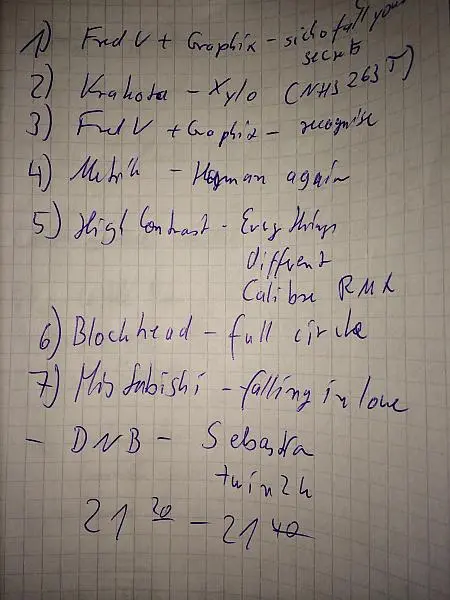 1) Fred V + Graphix - sick of all your
secrets
2) Krakota - Xylo (NHS 263 J)
3) Fred V + Graphix - recognise
4) Metrik - Human again
5) High Contrast - Everythings
diffrent
Calibre RMX
6) Blockhead - full circle
7) Mistabishi - falling in love
- DNB - Sebastra
twin 2h
21 20 - 21 40